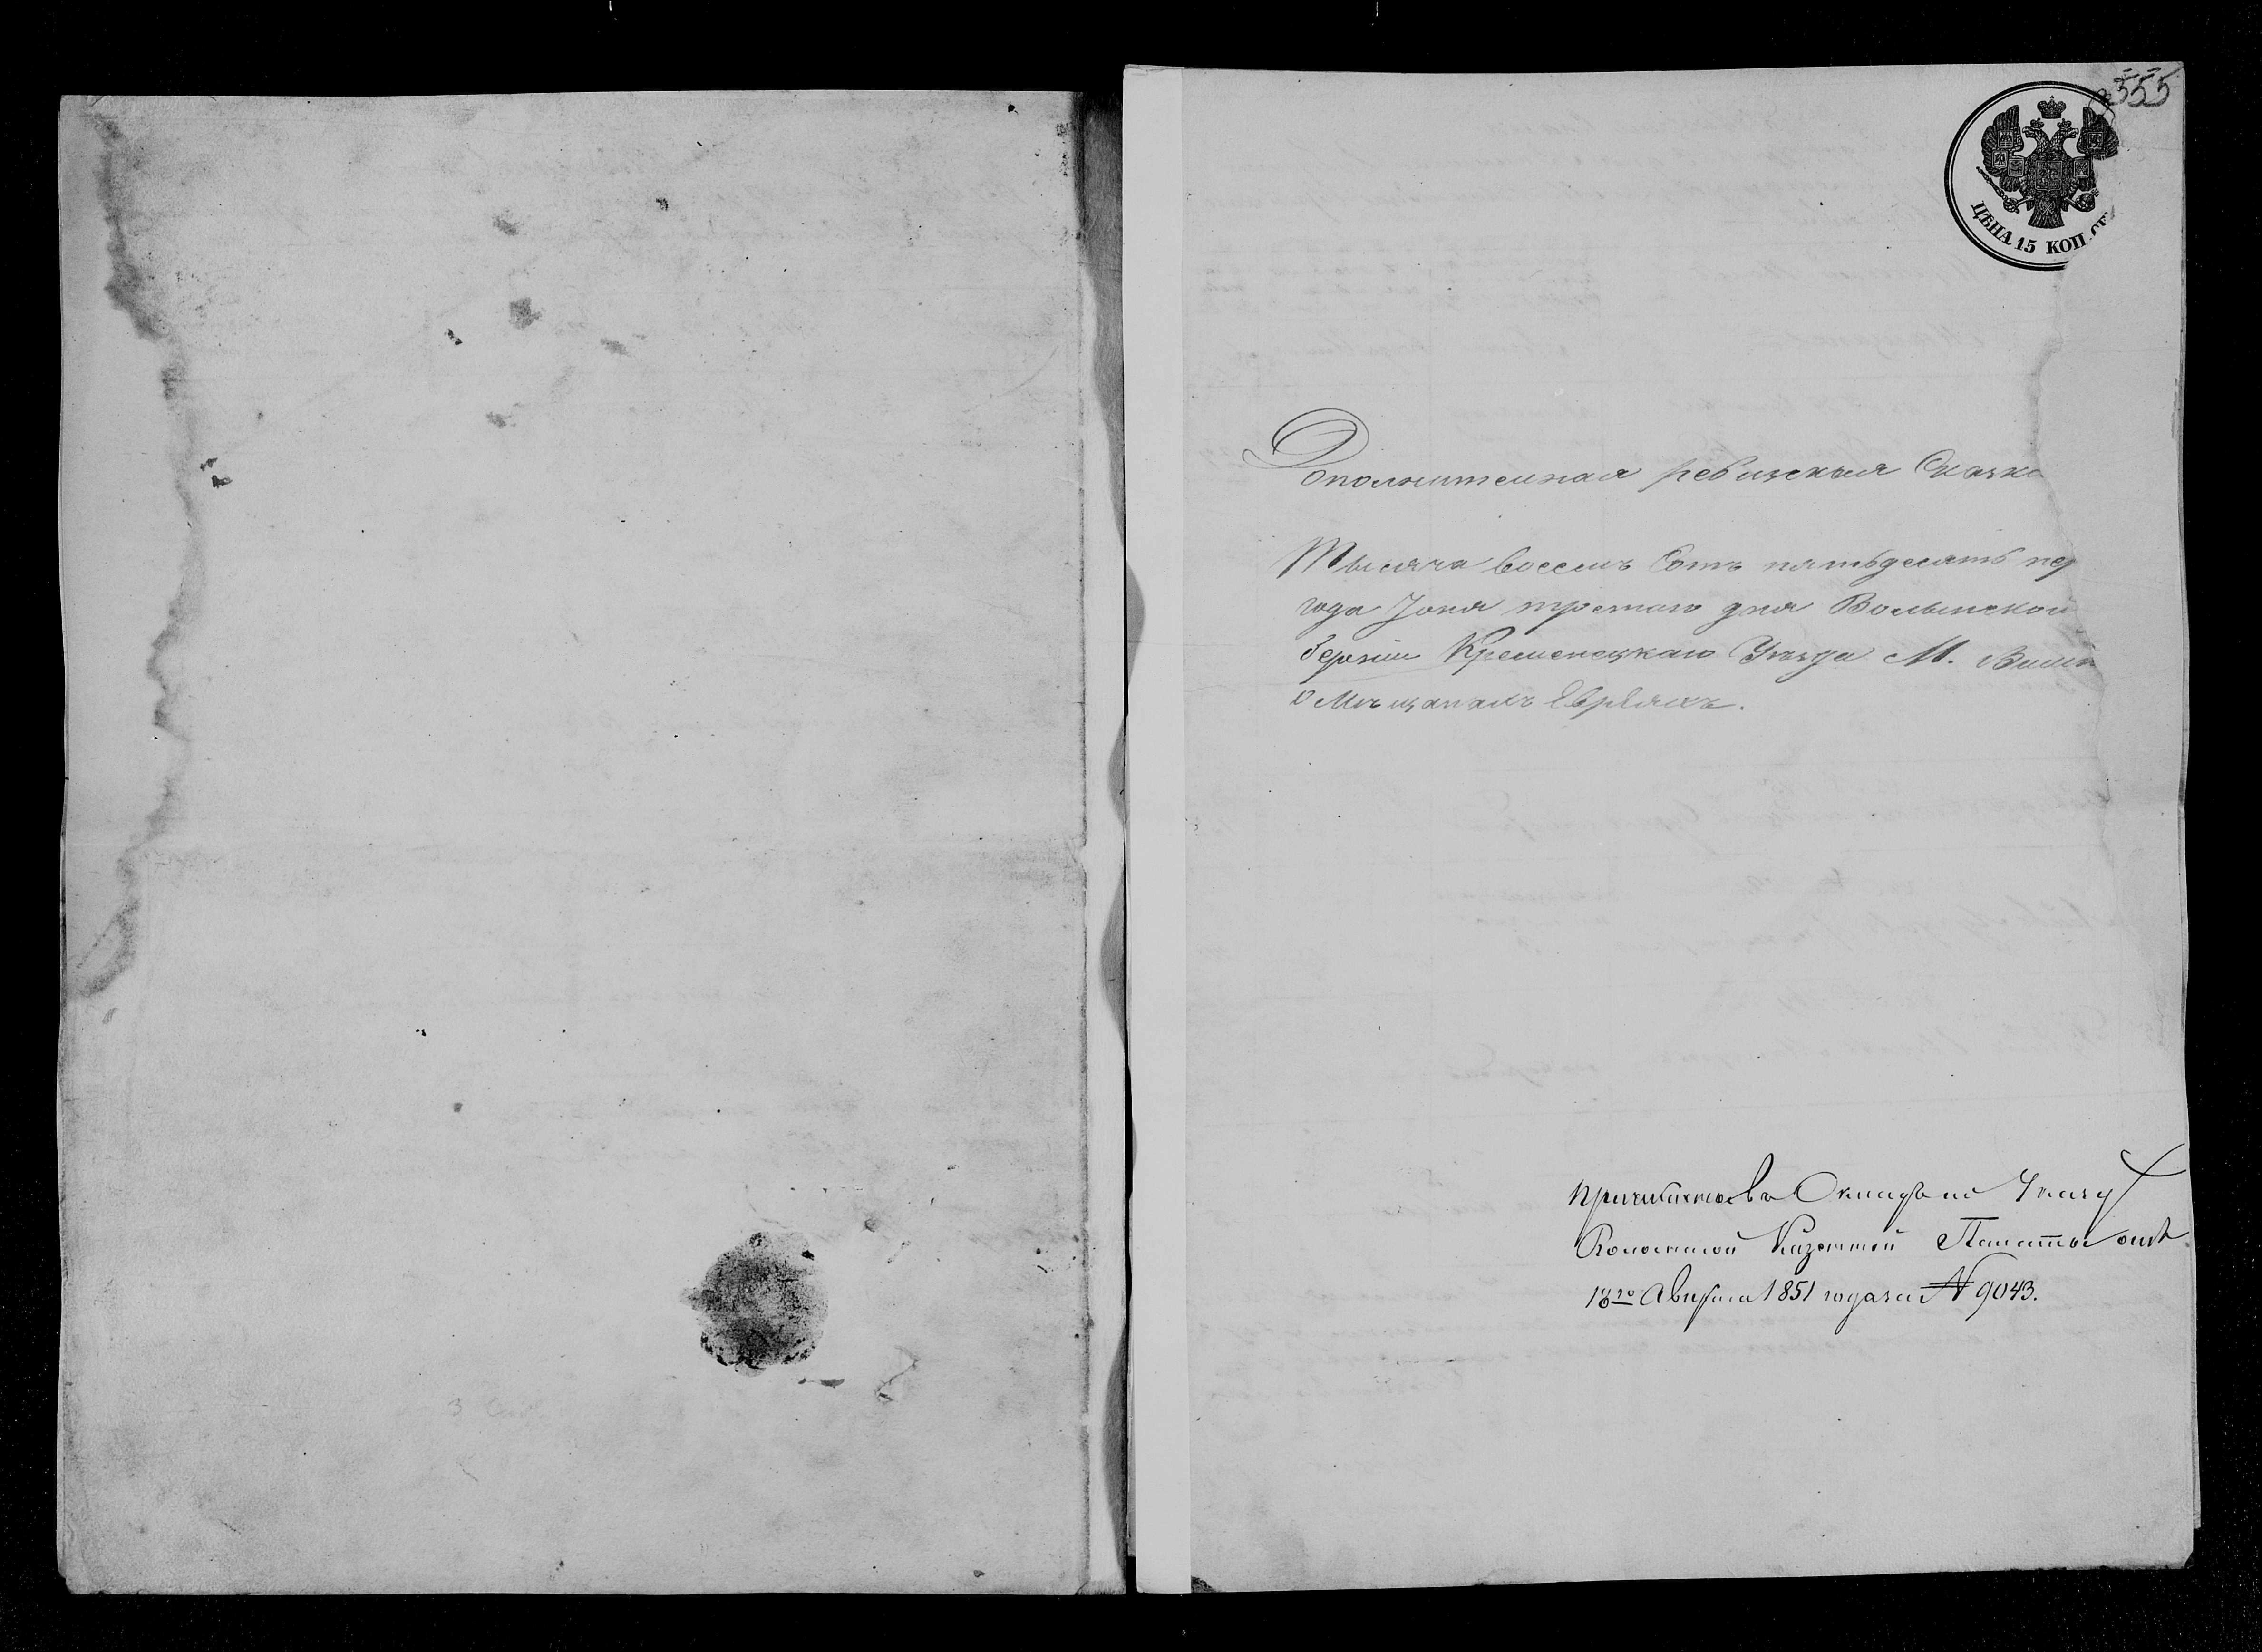 555
ЦѢНА 15 КОП. СЕ
Дополнителная ревизская Сказка
Тысяча восемъ Сотъ пятьдесятъ пер
года Іюня третяго дня Волынской
Губерніи Кременецкаго Уѣзда М. Виш
о Мѣщанахъ Евреяхъ.
Окладъ по Указу
Волынской Казенной Палаты отъ
18го Августа 1851 года за № 9043.